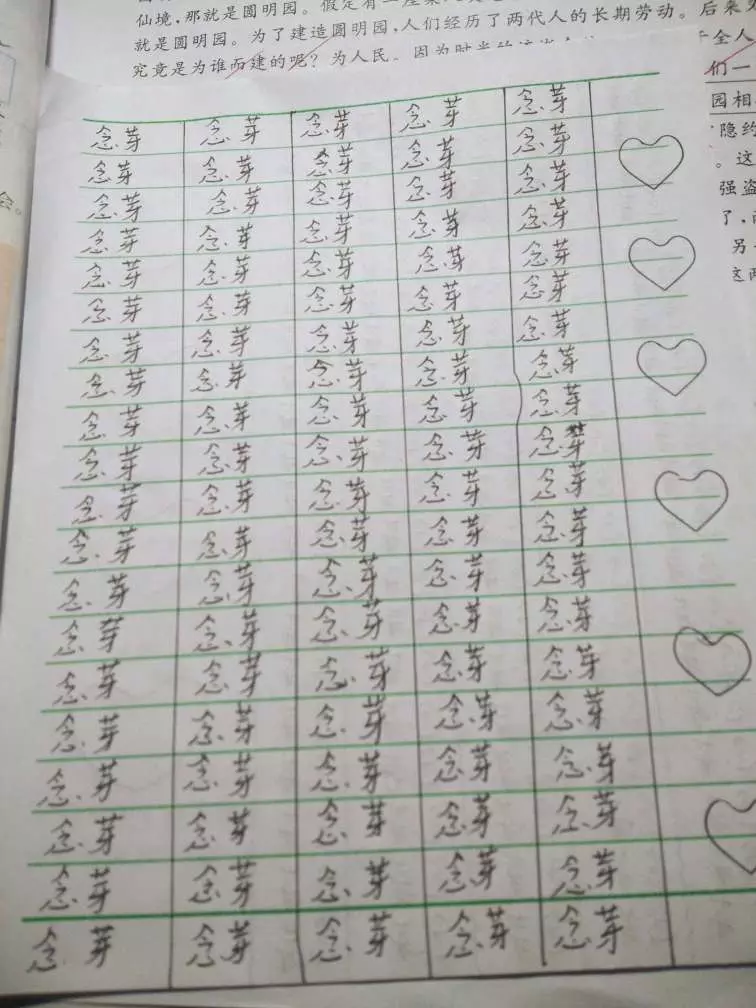 仙境，那就是圆明园。假定有一座
就是圆明园。为了建造圆明园，人们经历了两代人的长期劳动。后来又
究竟是为谁而建的呢？为人民。因为 全人
们一
园相
隐约
。这
强盗
了，
另
这两
会。
念芽 念芽 念芽 念芽 念芽
念芽 念芽 念芽 念芽 念芽
念芽 念芽 念芽 念芽 念芽
念芽 念芽 念芽 念芽 念芽
念芽 念芽 念芽 念芽 念芽
念芽 念芽 念芽 念芽 念芽
念芽 念芽 念芽 念芽 念芽
念芽 念芽 念芽 念芽 念芽
念芽 念芽 念芽 念芽 念芽
念芽 念芽 念芽 念芽 念芽
念芽 念芽 念芽 念芽 念芽
念芽 念芽 念芽 念芽 念芽
念芽 念芽 念芽 念芽 念芽
念芽 念芽 念芽 念芽 念芽
念芽 念芽 念芽 念芽 念芽
念芽 念芽 念芽 念芽 念芽
念芽 念芽 念芽 念芽 念芽
念芽 念芽 念芽 念芽 念芽
念芽 念芽 念芽 念芽 念芽
念芽 念芽 念芽 念芽 念芽